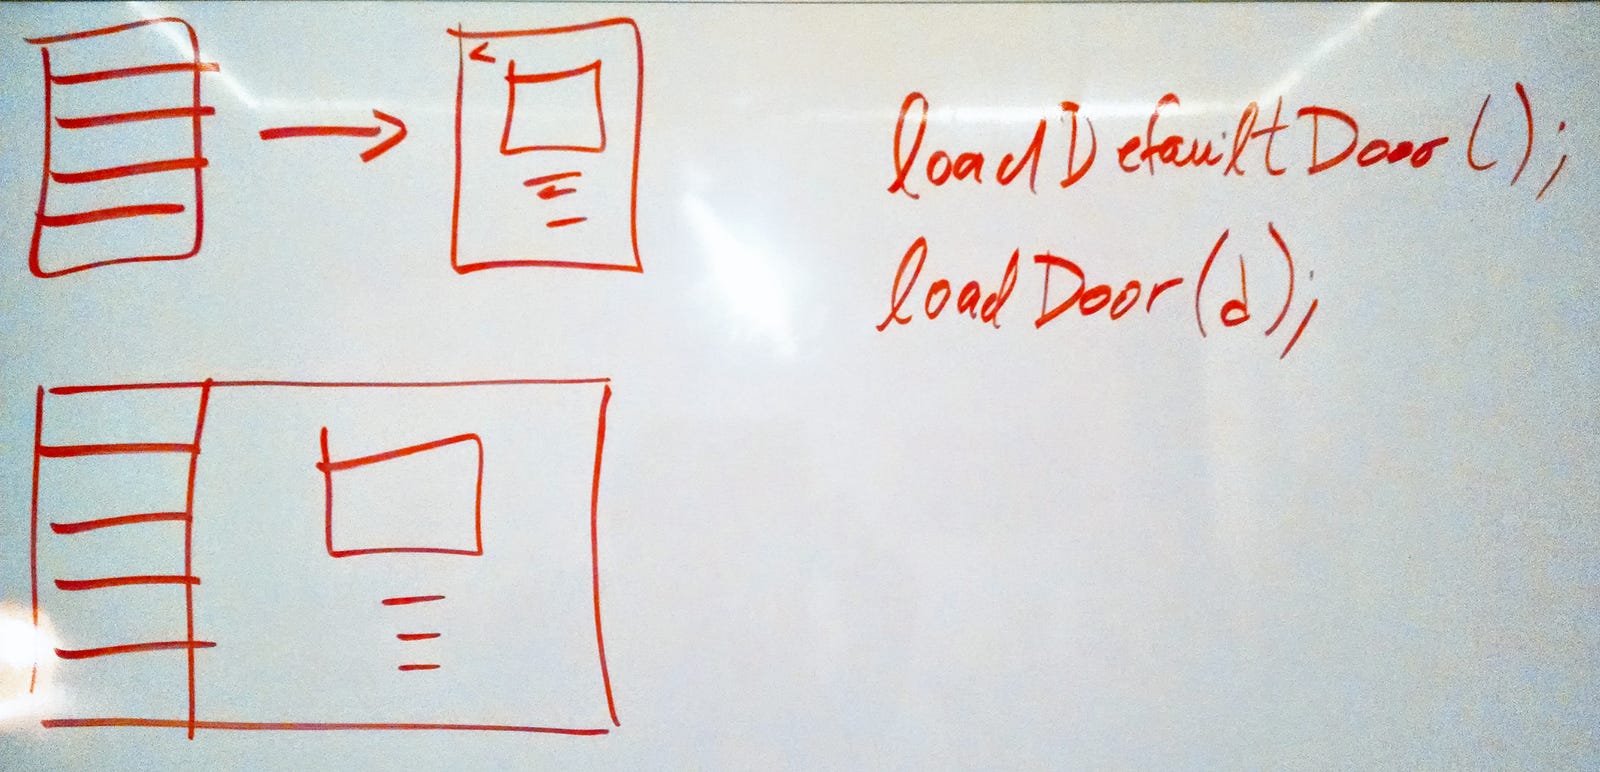 <
loadDefaultDoor();
loadDoor(d);